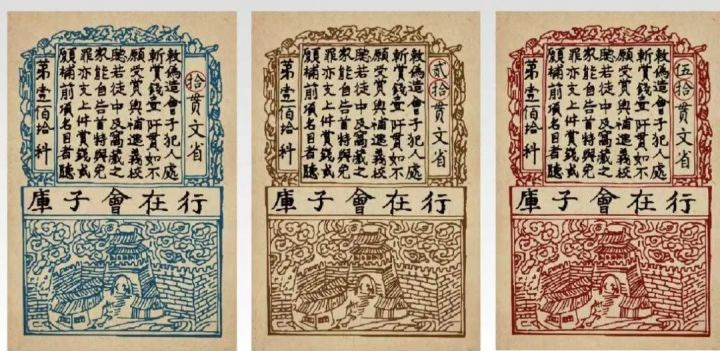 拾貫文省
敕偽造會子犯人處
斬賞錢壹阡貫如不
願受賞與補進義校
尉若徒中及窩藏之
家能自告首特與免
罪亦支上件賞錢或
願補前項名目者聽
第壹佰拾料
行在會子庫
貳拾貫文省
敕偽造會子犯人處
斬賞錢壹阡貫如不
願受賞與補進義校
尉若徒中及窩藏之
家能自告首特與免
罪亦支上件賞錢或
願補前項名目者聽
第壹佰拾料
行在會子庫
伍拾貫文省
敕偽造會子犯人處
斬賞錢壹阡貫如不
願受賞與補進義校
尉若徒中及窩藏之
家能自告首特與免
罪亦支上件賞錢或
願補前項名目者聽
第壹佰拾料
行在會子庫